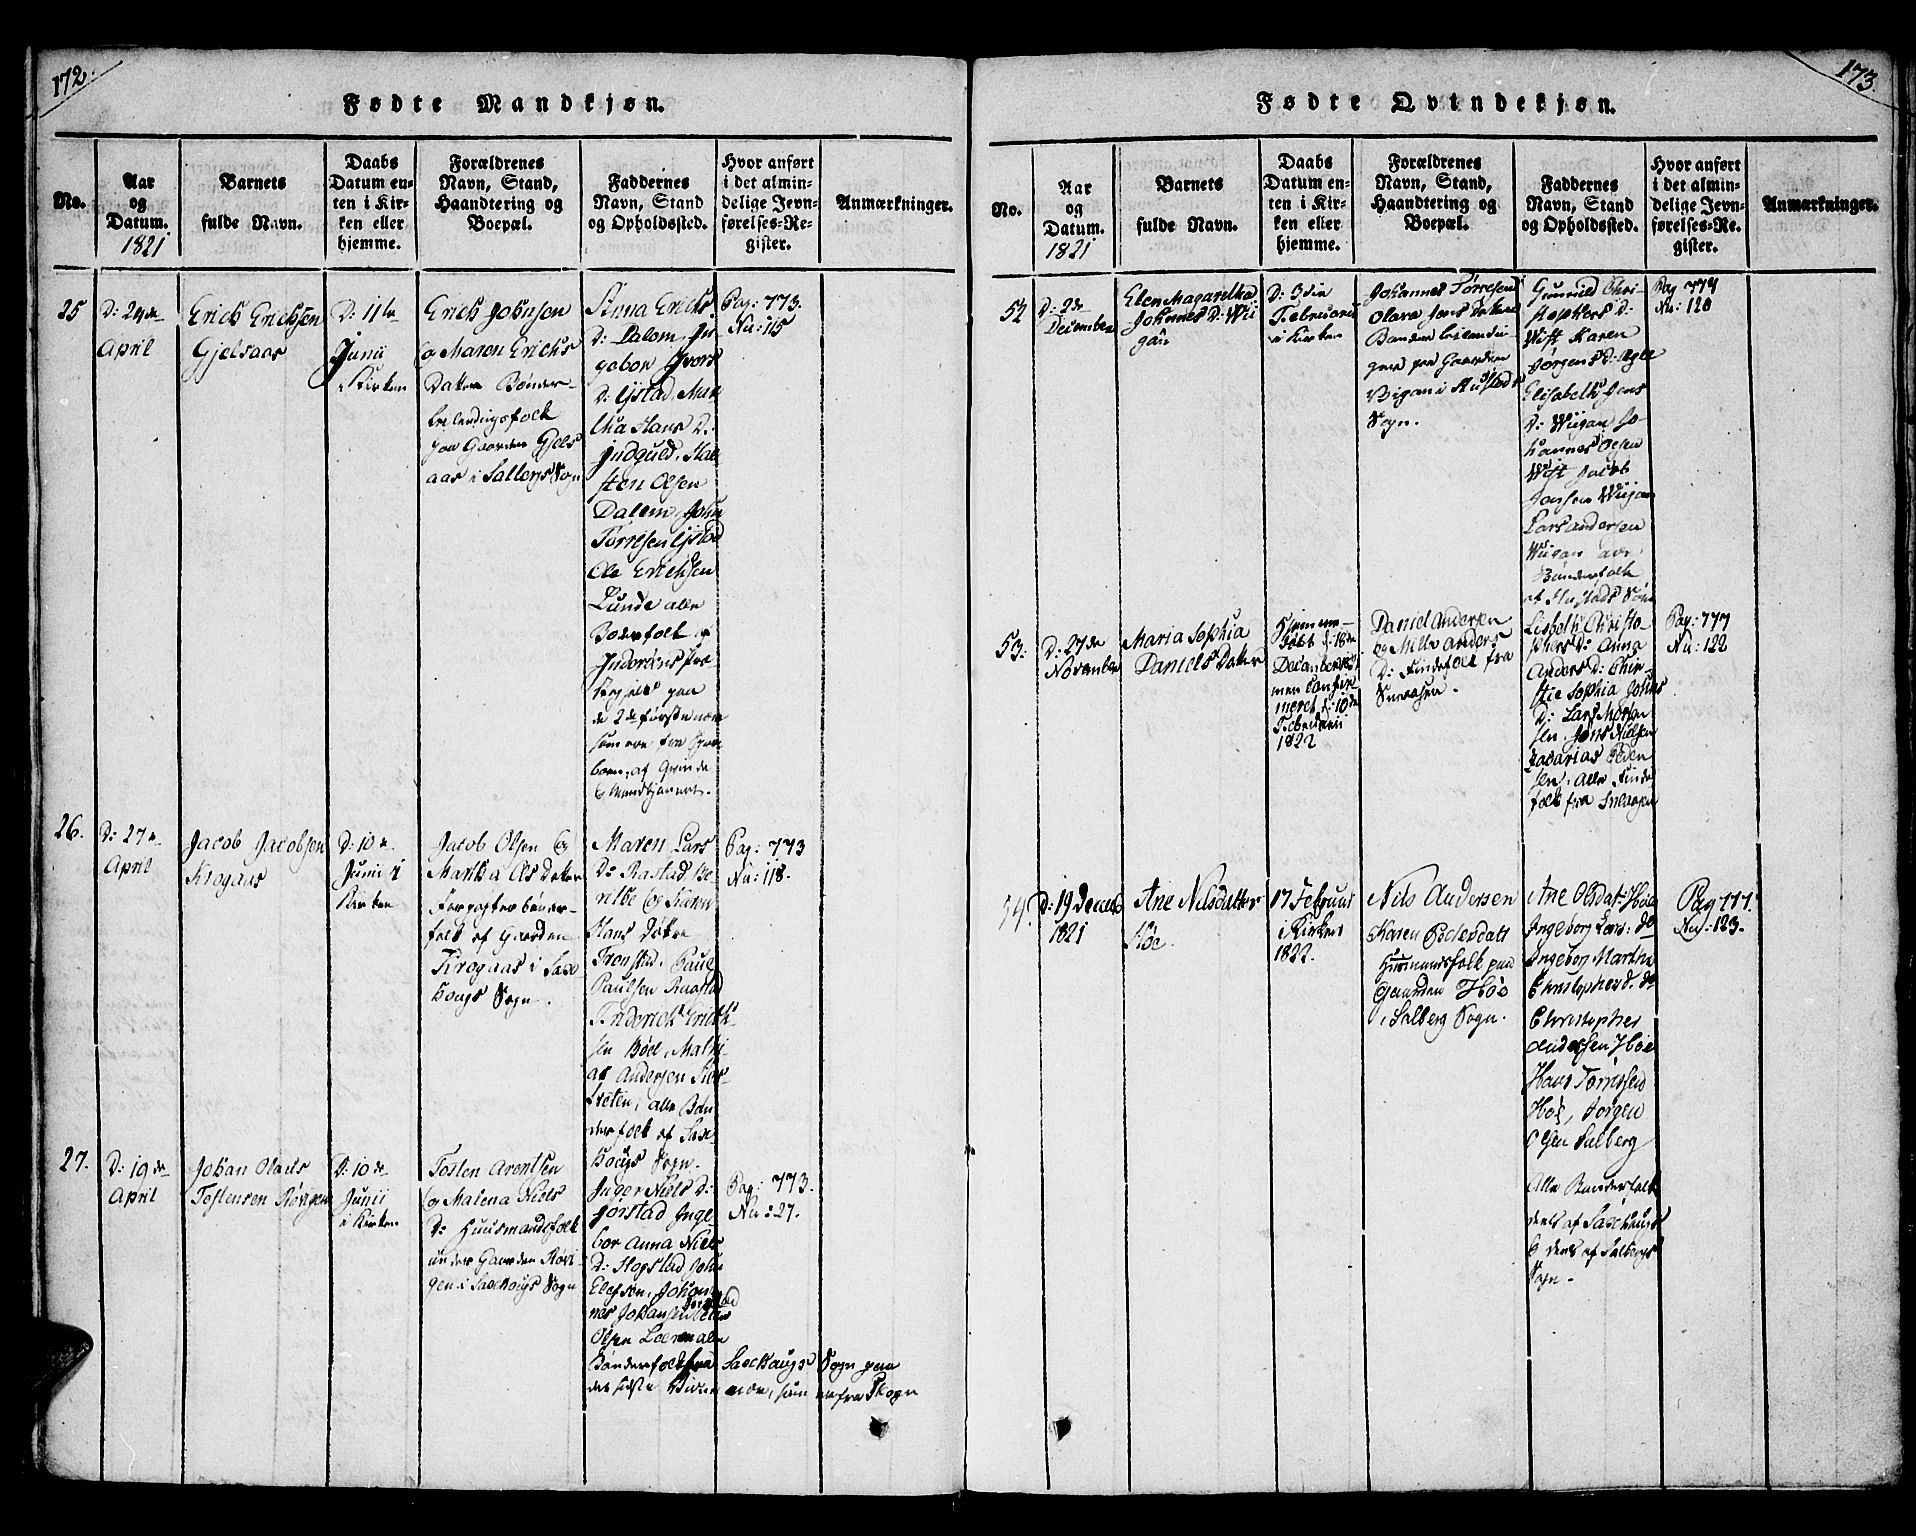 172.
Fødte Mandkjøn.
No.
Aar
og
Datum.
1821
Barnets
fulde Navn.
Daabs
Datum en-
ten i Kir-
ken eller
hjemme.
Forældrenes
Navn, Stand,
Haandtering og
Boepæl.
Faddernes
Navn, Stand
og Opholdssted.
Hvor anført
i det almin-
delige Jevn-
førelses-Re-
gister.
Anmærkninger.
25
D: 24de
April
Erich Erichsen
Gjelsaas
D: 11te
Junii
i Kirken
Erich Johnsen
og Maren Erichs
Datter Bønder-
folk
paa Gaarden Gjels
aas i Salbergs Sogn
Anna Erichs
D: Dalem, In
gebor Ivers
D: Ystad, Mar
tha Hans D:
Hal
sten Olsen
Dalem, John
Torresen Ystad
Ole Erichsen
Lunde alle
Bønderfolk af
Inderøens Præ
stegield paa
de 2de første nær
som ere fra
af Grinde
Pag: 773.
Nu: 115
26.
D: 27de
April
Jacob Jacobsen
Krogaas
D: 10de
Junii i
Kirken
Jacob Olsen og
Martha Ols Datter
Forpagter bønder-
folk af Gaarden
Krogaas i Sax
hougs Sogn.
Maren Lars
D: Rastad Be
rethe og Karen
Hans Døttre
Tronstad, Paul
Paulsen Rastad
Friderich Erich-
sen Böel, Mathi-
as Andersen
alle Bøn
derfolk af Sax-
hougs Sogn.
Pag: 773
Nu: 118.
27.
D: 19de
April
Johan Olaus
Tostensen Røvigen
D: 10de
Junii
i Kirken
Tosten Arentsen
og Malena Niels
D: Huusmandsfolk
under Gaarden Røvi-
gen i Saxhougs Sogn
Inger Niels D:
Jørstad Inge
bor Anna Niels
D: Hogstad John
Elefsen, Johan-
nes Johansen
Olsen alle
Bønderfolk fra Saxhougs Sogn paa
den sidste nær, som er fra Skogn
Pag: 773.
Nu: 27.
173.
Fødte Qvindekjøn.
No.
Aar
og
Datum.
1821
Barnets
fulde Navn.
Daabs
Datum en-
ten i Kir-
ken eller
hjemme.
Forældrenes
Navn, Stand,
Haandtering og
Boepæl.
Faddernes
Navn, Stand
og Opholdssted.
Hvor anført
i det almin-
delige Jevn-
førelses-Re-
gister.
Anmærkninger.
52
D: 2de
December
Elen Magaretha
Johannes D: Wii
gan
D: 3die
Februarii
i Kirken
Johannes Torresen
Olava Jens Datter
Bønder
paa Gaarden
Vigan i Hustads
Sogn.
Gunnild Chri-
stophers D:
Wist Karen
Jørgens D: Agle
Elisabeth Jens
D: Wiigan Jo-
hannes Olsen
Wist Jacob
Jensen Wiigan
Lars Andersen
Wiigan alle
Bønderfolk
af Hustads Sogn
Pag 777
Nu: 120
53:
D: 27de
November
Maria Sophia
Daniels Datter
Hjemme-
døbt d: 18de
December
men confir
meret d: 10de
Februarii
1822
Daniel Andersen
og Mille Anders
D: Findefolk fra
Snaasen.
Lisbeth Christo
phers D: Anna
Anders D: Chir-
stie Sophia Johns
D: Lars Morten
sen, Jens Nielsen
Zacarias Peder
sen, alle Finde
folk fra Snaasen
Pag: 777
Nu: 122
54.
D: 19 Decemb
1821
Ane Nilsdatter
Höe.
17 Februar
i Kirken
1822.
Nils Andersen
Karen Pedersdatt
Huusmandsfolk paa
Gaarden Höe
i Salberg Sogn.
Ane Olsdat: Höe
Ingeborg Lars: do
Ingebor Martha
Christophersd. do
Christopher
Andersen Höe
Hans Torrissen
Höe, Jörgen
Olsen Salberg
Alle Bønderfolk
dels af Saxhaugs
& dels af Salbergs
Sogn.
Pag 777.
Nu: 123.